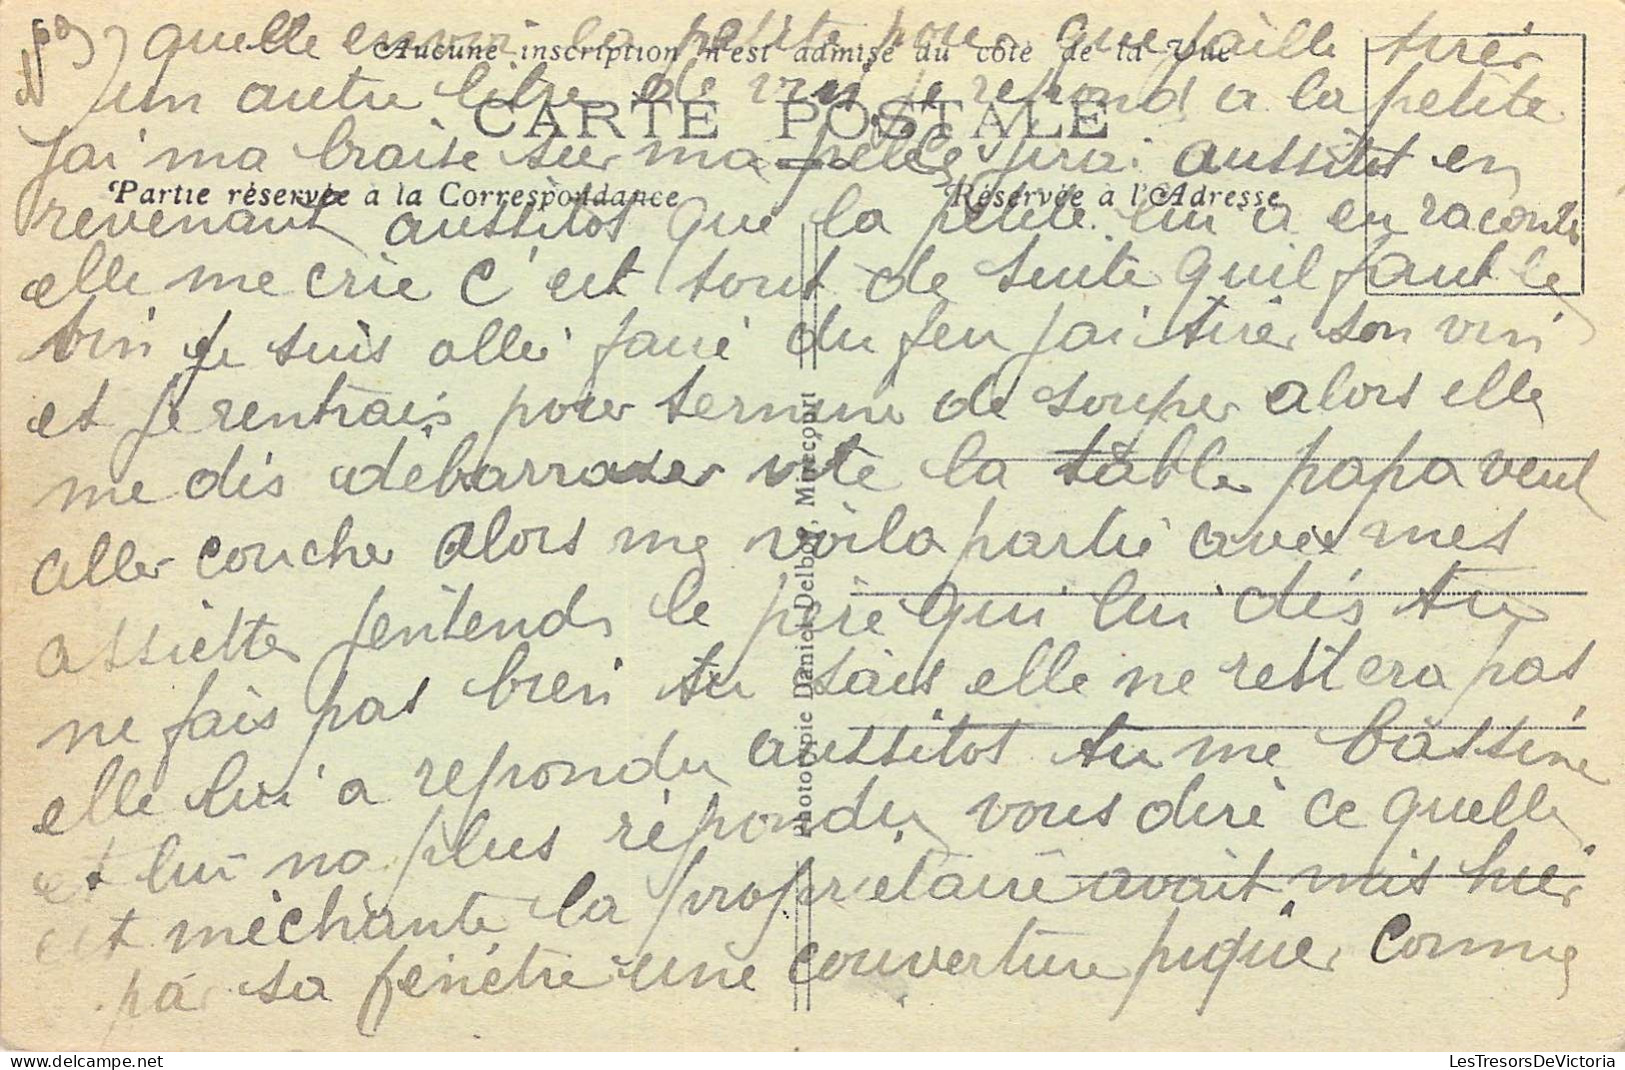 quelle envoi la petite pour que jaille tirer
Aucune inscription n'est admise du côté de la Vue
un autre litre de vin je repond a la petite
CARTE POSTALE
jai ma braise sur ma pelle jirai aussitot en
Partie réservée à la Correspondance
Réservée à l'Adresse
revenant aussitos que la petite lui a eu raconte
elle me crie c'est tout de suite quil faut le
vin je suis allé faire du feu jai tirer son vin
et je rentrais pour termine de souper alors elle
me dis debarrasser vite la table papa veut
aller coucher alors me voila partie avec mes
assiettes jentends le père qui lui dis tu
ne fais pas bien tu sais elle ne restera pas
elle lui a repondu aussitos tu me bassine
et lui na plus répondu vous dire ce quelle
est méchante la propriétaire avait mis hier
par sa fenétre une couverture piquer comme
Phototypie Daniel Delboy, Mirecourt
LesTresorsDeVictoria